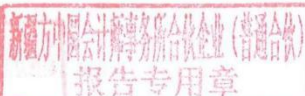 新疆方中圆会计师事务所合伙企业（普通合伙）
报告专用章